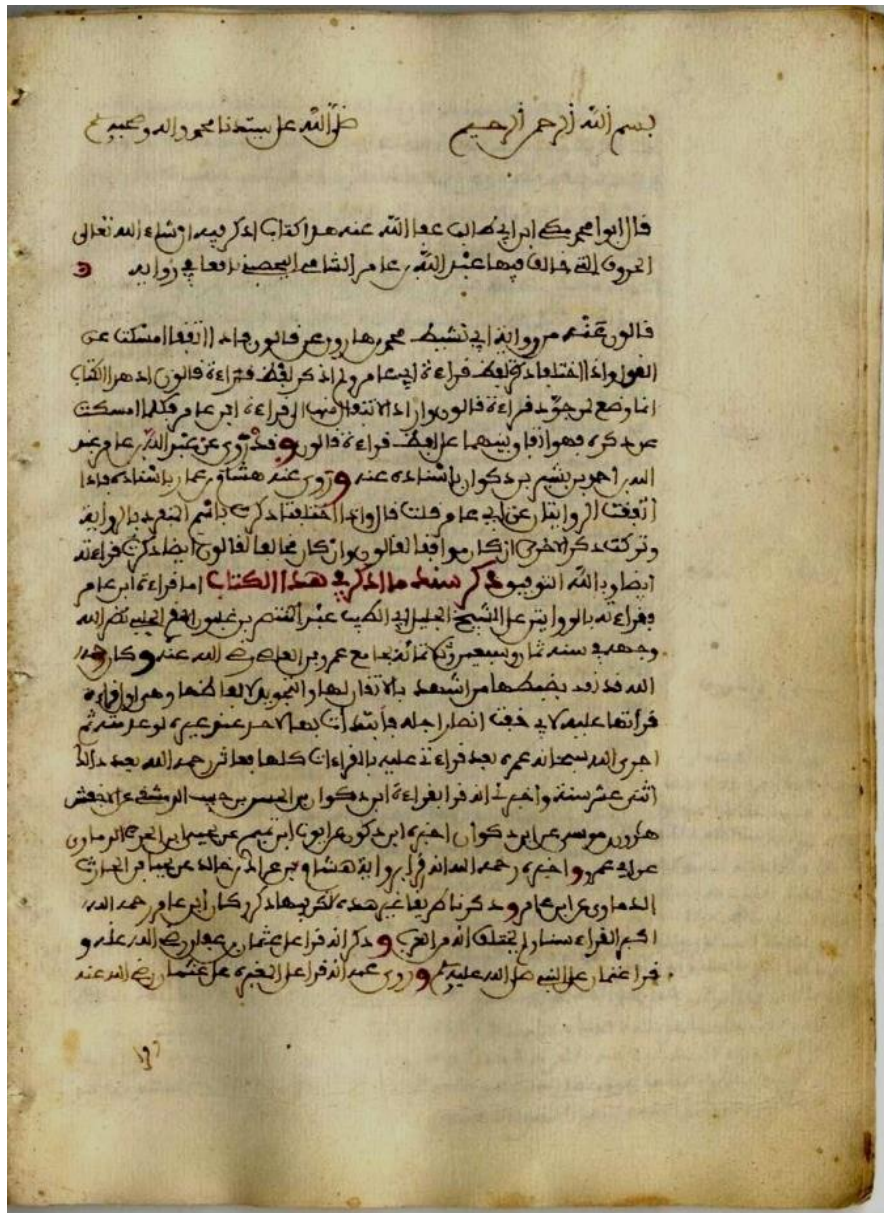 بسم الله الرحمن الرحيم صلى الله على سيدنا محمد واله وصحبه
قال ابوا محمد مكي ابن ابي طالب عفا الله عنه هذا كتاب اذكر فيه ان شاء الله تعالى
الحروف التي خالف فيها عبد الله بن عامر الشامي اليحصبي نافعا في رواية
قالون عنه من رواية ابي نشيط محمد بن هارون عن قالون فاذا اتفقا امسكت عن
القول واذا اختلفا ذكرت لفظ قراءة ابن عامر ولم اذكر لفظ قراءة قالون اذ هذا الكتاب
انما وضع لمن جود قراءة قالون واراد الانتقال منها الى قراءة ابن عامر فكلما امسكت
عن ذكره فهو وفاق بينهما على لفظ قراءة قالون وقد روى عن عبد الله بن عامر عبد
الله بن احمد بن بشير بن ذكوان باسناده عنه وروى عنه هشام بن عمار باسناده فاذا
اتفقت الروايتان عن ابن عامر قلت قال واذا اختلفتا ذكرت باسم المنفرد بالرواية
وتركت ذكر الاخرى ان كان موافقا لقالون وان كان مخالفا لقالون ايضا ذكرت قراءته
ايضا وبالله التوفيق ذكر سند ما اذكر في هذا الكتاب اما قراءة ابن عامر
فقراءته بالروايتين على الشيخ الجليل ابي الطيب عبد المنعم بن غلبون الحلبي نضر الله
وجهه في سنة ثمان وسبعين وثلاثمائة بجامع عمرو بن العاص رضي الله عنه وكان رحمه
الله قد بضبطها بالاتقان لها والتجويد لالفاظها وهي اول قراءة
قراتها عليه لاني خفت اجله فابتدات بها ثم
اجرى الله سبحانه عمره بعد قراءتي عليه بالقراءات كلها رحمه الله بعد ذلك
اثنتي عشر سنة واخبرني انه قرا بقراءة ابن ذكوان بن حبيب الدمشقي على الاخفش
هارون بن موسى عن ابن ذكوان اخبره ابن ذكوان عن ايوب ابن تميم عن يحيى ابن الحرث الذماري
عن ابن عمر واخبرني رحمه الله انه قرا برواية هشام بن خالد عن يحيى بن الحارث
الذماري عن ابن عامر وذكرنا طريقا غير هذه لكن بها ذكر وكان ابن عامر رحمه الله
اكبر القراء سنا ولم يختلف انه من العرب وذكر انه قرا على عثمان بن عفان رضي الله عنه و
قرا عثمان على النبي صلى الله عليه وسلم وروى عنه انه قرا على المغيرة على عثمان رضي الله عنه